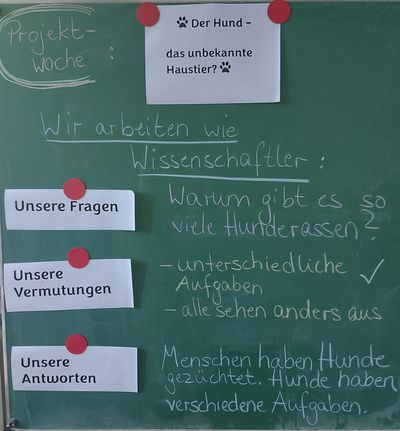 Projekt-
woche:
🐾 Der Hund –
das unbekannte
Haustier? 🐾
Wir arbeiten wie
Wissenschaftler:
Unsere Fragen
Warum gibt es so
viele Hunderassen?
Unsere
Vermutungen
– unterschiedliche ✓
Aufgaben
– alle sehen anders aus
Unsere
Antworten
Menschen haben Hunde
gezüchtet. Hunde haben
verschiedene Aufgaben.